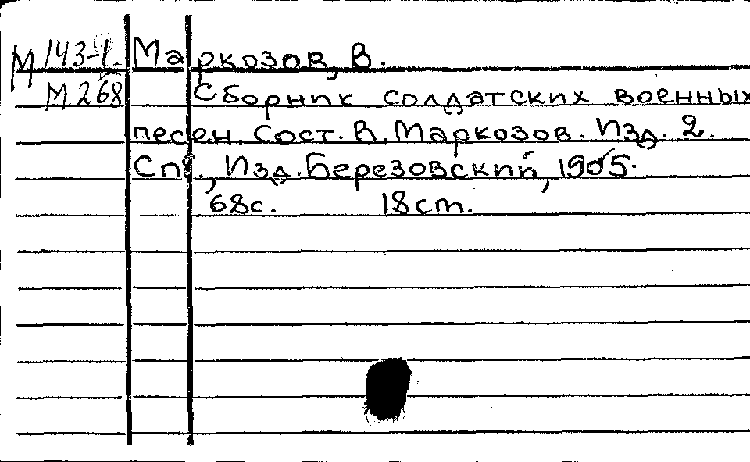 М 143-1. Маркозов, В.
М 268 Сборник солдатских военных
песен. Сост. В. Маркозов. Изд. 2.
Спб., Изд. Березовский, 1905.
68с. 18 ст.